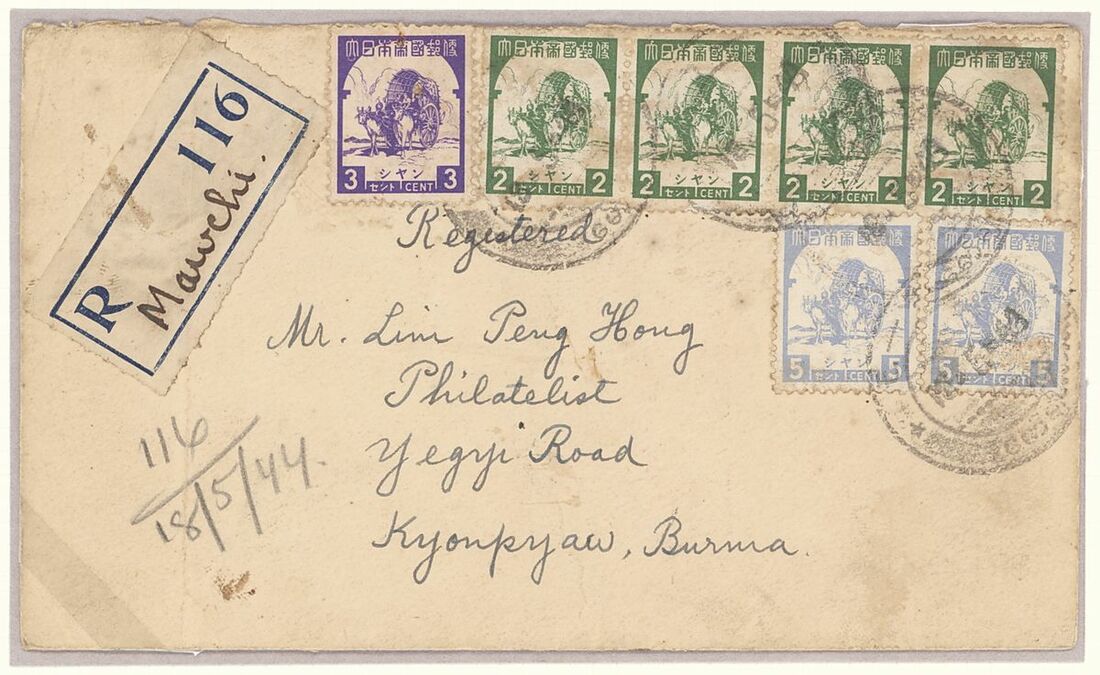 大日本帝國郵便
シヤン
3 セント CENT 3
大日本帝國郵便
シヤン
2 セント CENT 2
大日本帝國郵便
シヤン
2 セント CENT 2
大日本帝國郵便
シヤン
2 セント CENT 2
大日本帝國郵便
シヤン
2 セント CENT 2
R 116
Mawchi.
Registered
大日本帝國郵便
シヤン
5 セント CENT 5
大日本帝國郵便
シヤン
5 セント CENT 5
Mr. Lim Peng Hong
Philatelist
Yegyi Road
Kyonpyaw, Burma.
116
18/5/44.